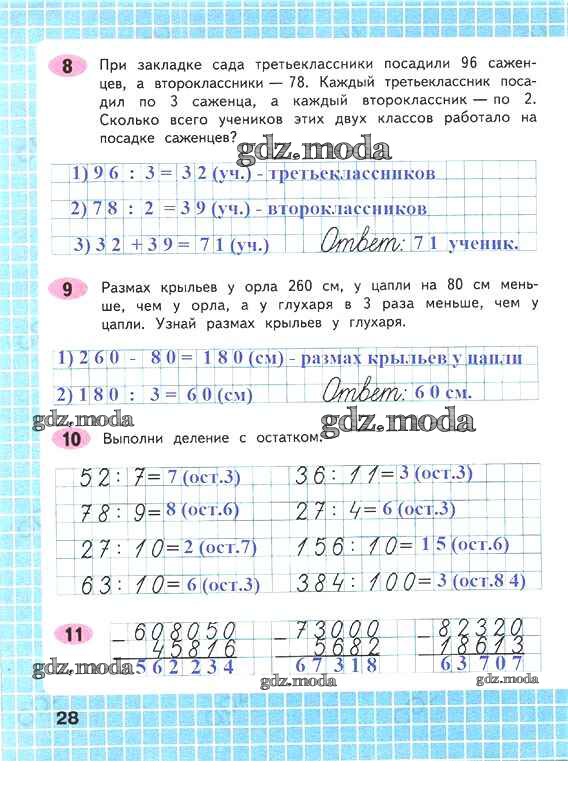 8 При закладке сада третьеклассники посадили 96 сажен-
цев, а второклассники — 78. Каждый третьеклассник поса-
дил по 3 саженца, а каждый второклассник — по 2.
Сколько всего учеников этих двух классов работало на
посадке саженцев?
gdz.moda
1) 96 : 3 = 32 (уч.) - третьеклассников
2) 78 : 2 = 39 (уч.) - второклассников
3) 32 + 39 = 71 (уч.) Ответ: 71 ученик.
9 Размах крыльев у орла 260 см, у цапли на 80 см мень-
ше, чем у орла, а у глухаря в 3 раза меньше, чем у
цапли. Узнай размах крыльев у глухаря.
1) 260 - 80 = 180 (см) - размах крыльев у цапли
2) 180 : 3 = 60 (см) Ответ: 60 см.
gdz.moda gdz.moda
10 Выполни деление с остатком.
52 : 7 = 7 (ост.3) 36 : 11 = 3 (ост.3)
78 : 9 = 8 (ост.6) 27 : 4 = 6 (ост.3)
27 : 10 = 2 (ост.7) 156 : 10 = 15 (ост.6)
63 : 10 = 6 (ост.3) 384 : 100 = 3 (ост.84)
11 - 608050 - 73000 - 82320
45816 5682 18613
562234 67318 63707
gdz.moda gdz.moda gdz.moda
28